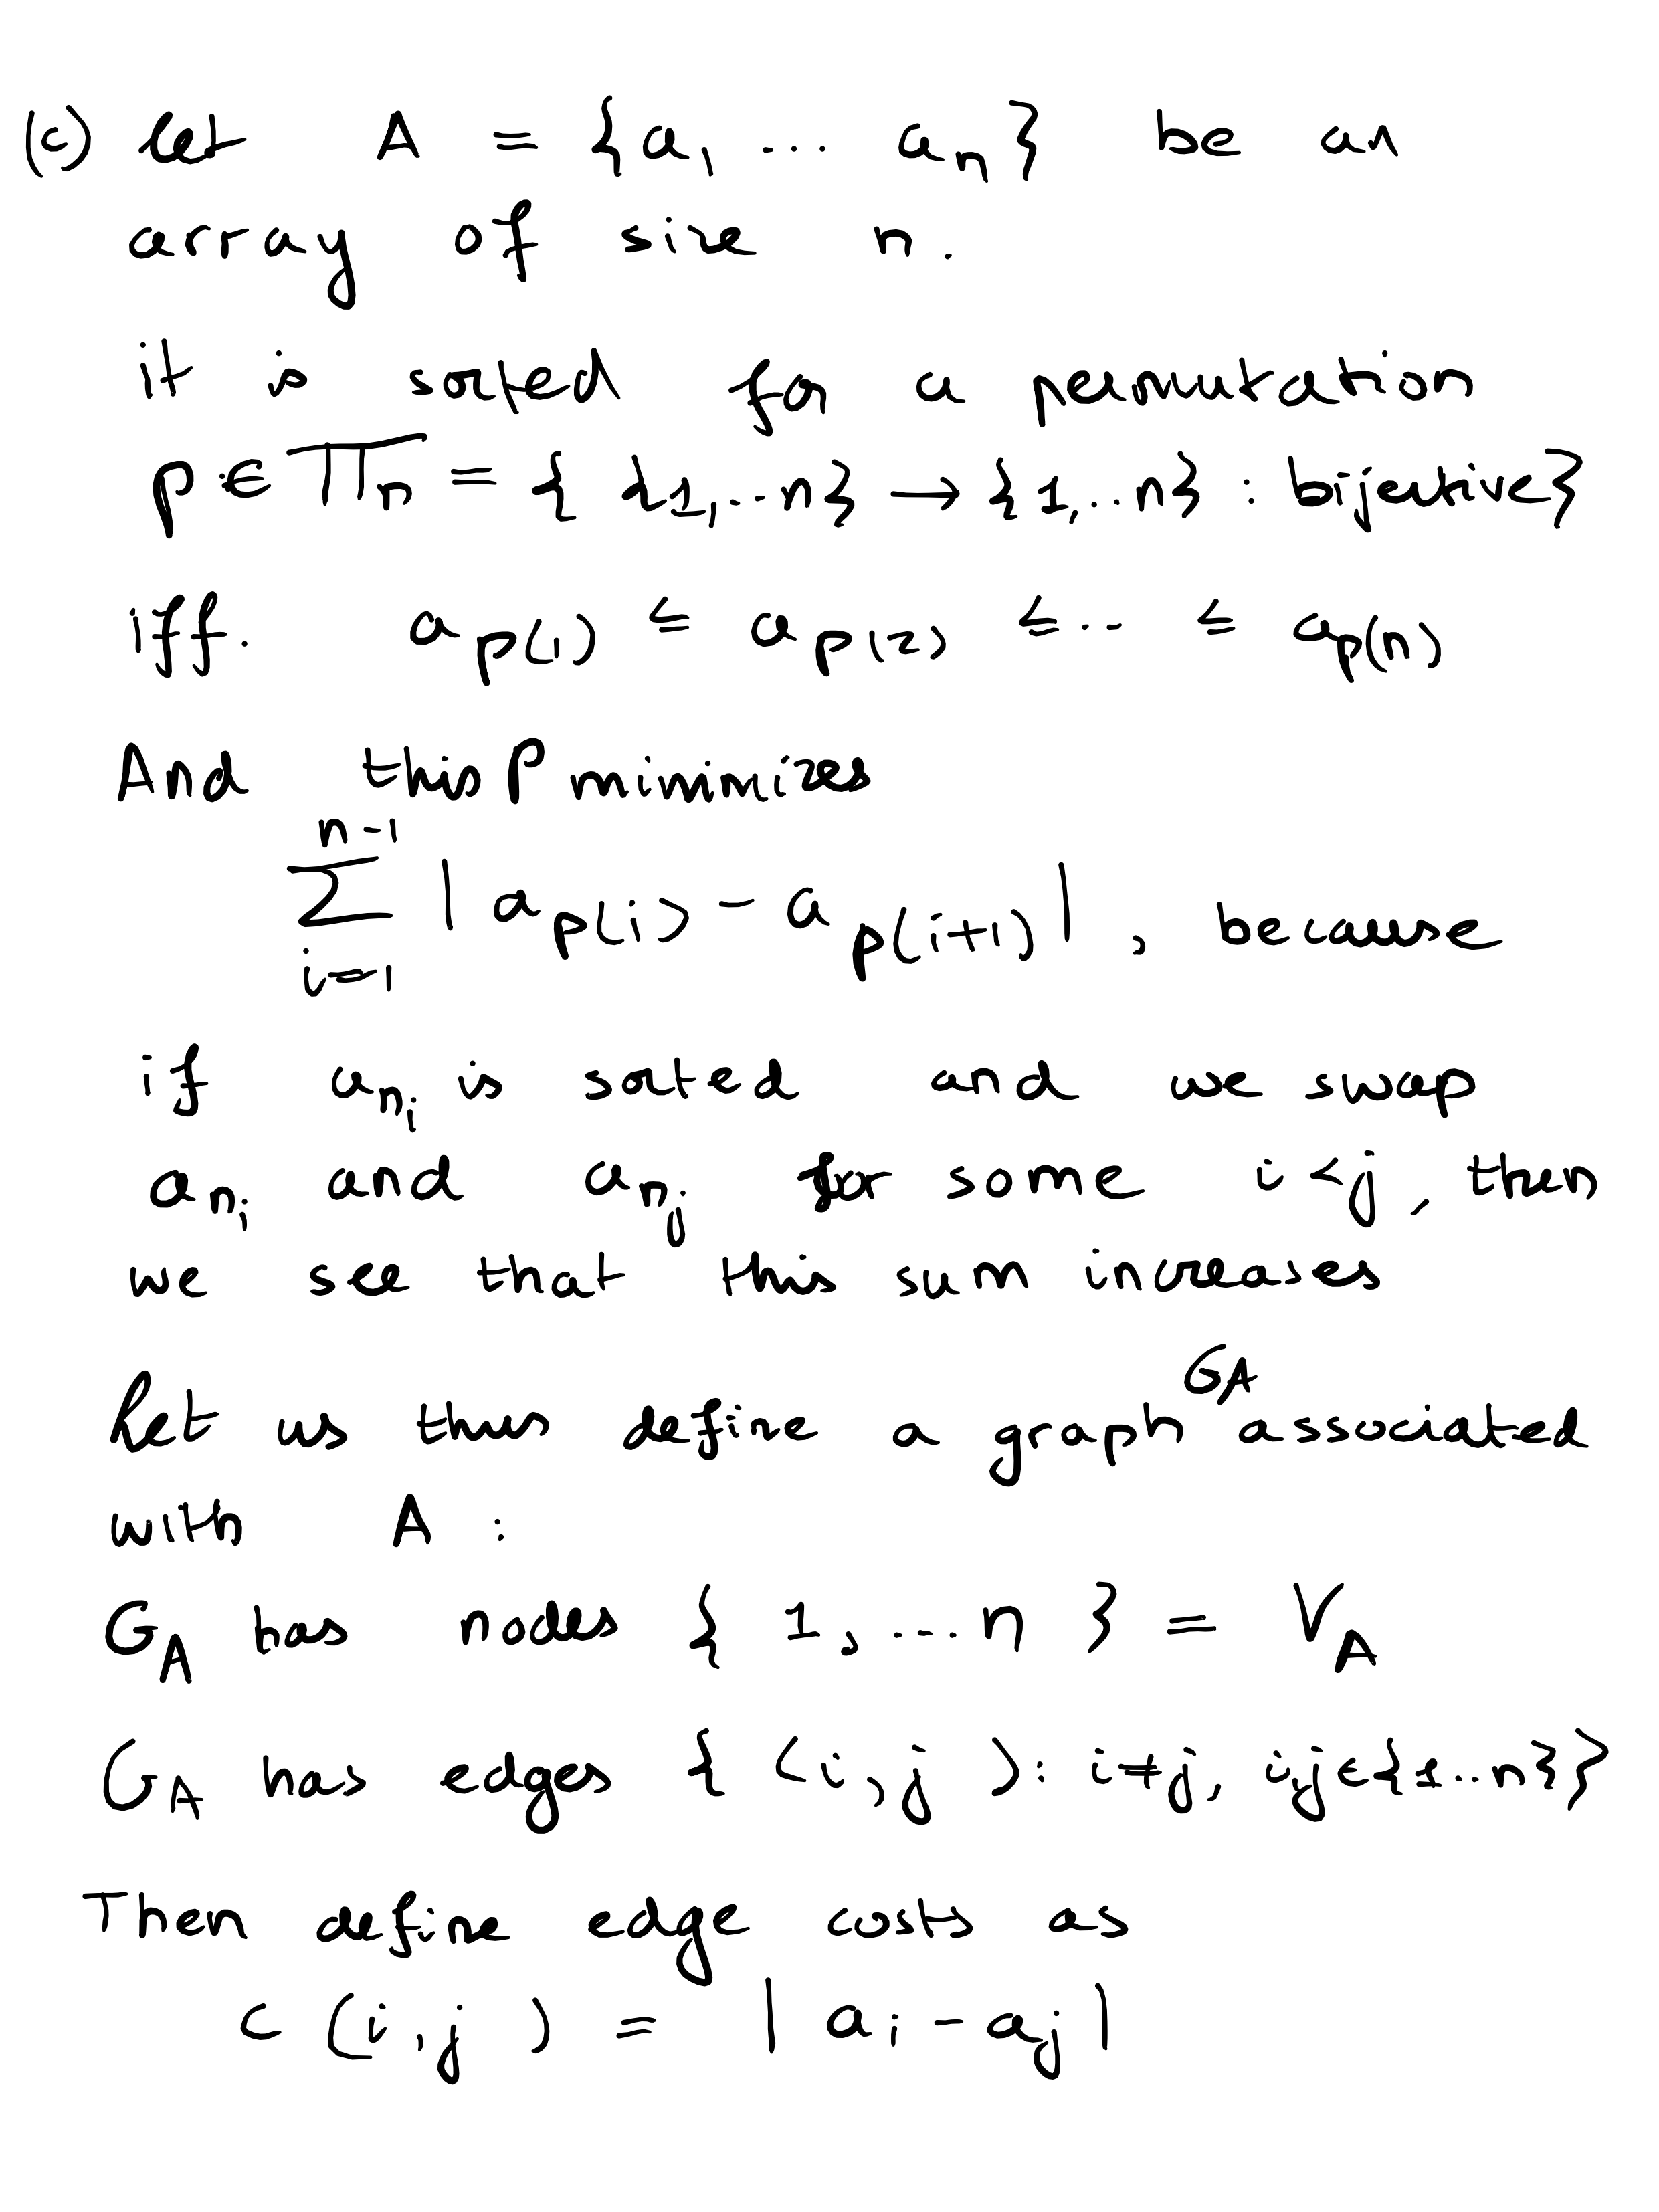 (c) let A = {a₁ ... aₙ} be an
array of size n.
it is sorted for a permutation
p ∈ Πₙ = { {1,...n} → {1,..n} : bijective}
iff. a_p(1) ≤ a_p(2) ≤ .. ≤ a_p(n)
And this P minimizes
∑_{i=1}^{n-1} | a_p(i) - a_p(i+1) | , because
if a_{n_i} is sorted and we swap
a_{n_i} and a_{n_j} for some i < j, then
we see that this sum increases
Let us thus define a graph G_A associated
with A :
G_A has nodes { 1, ... n } = V_A
G_A has edges { (i,j) : i≠j, i,j∈{1...n}}
Then define edge costs as
c (i,j) = | a_i - a_j |